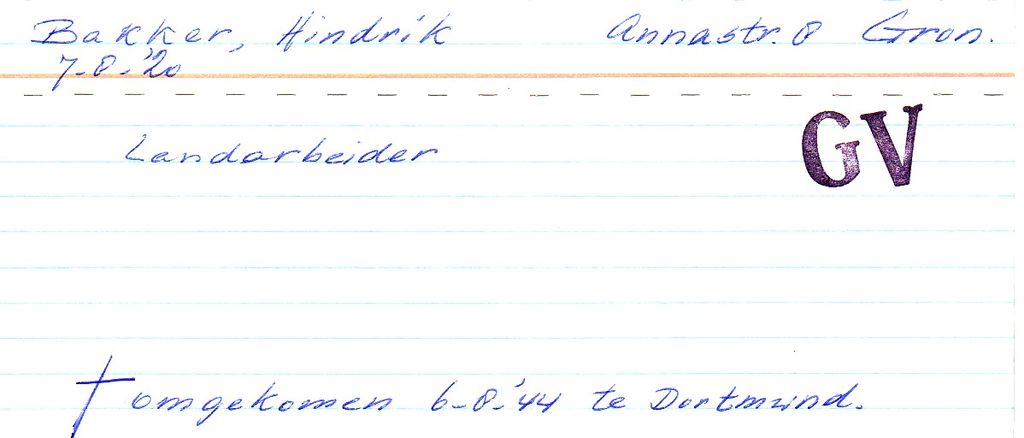 Bakker, Hindrik Annastr. 8 Gron.
7-8-'20
GV
Landarbeider
† omgekomen 6-8-'44 te Dortmund.